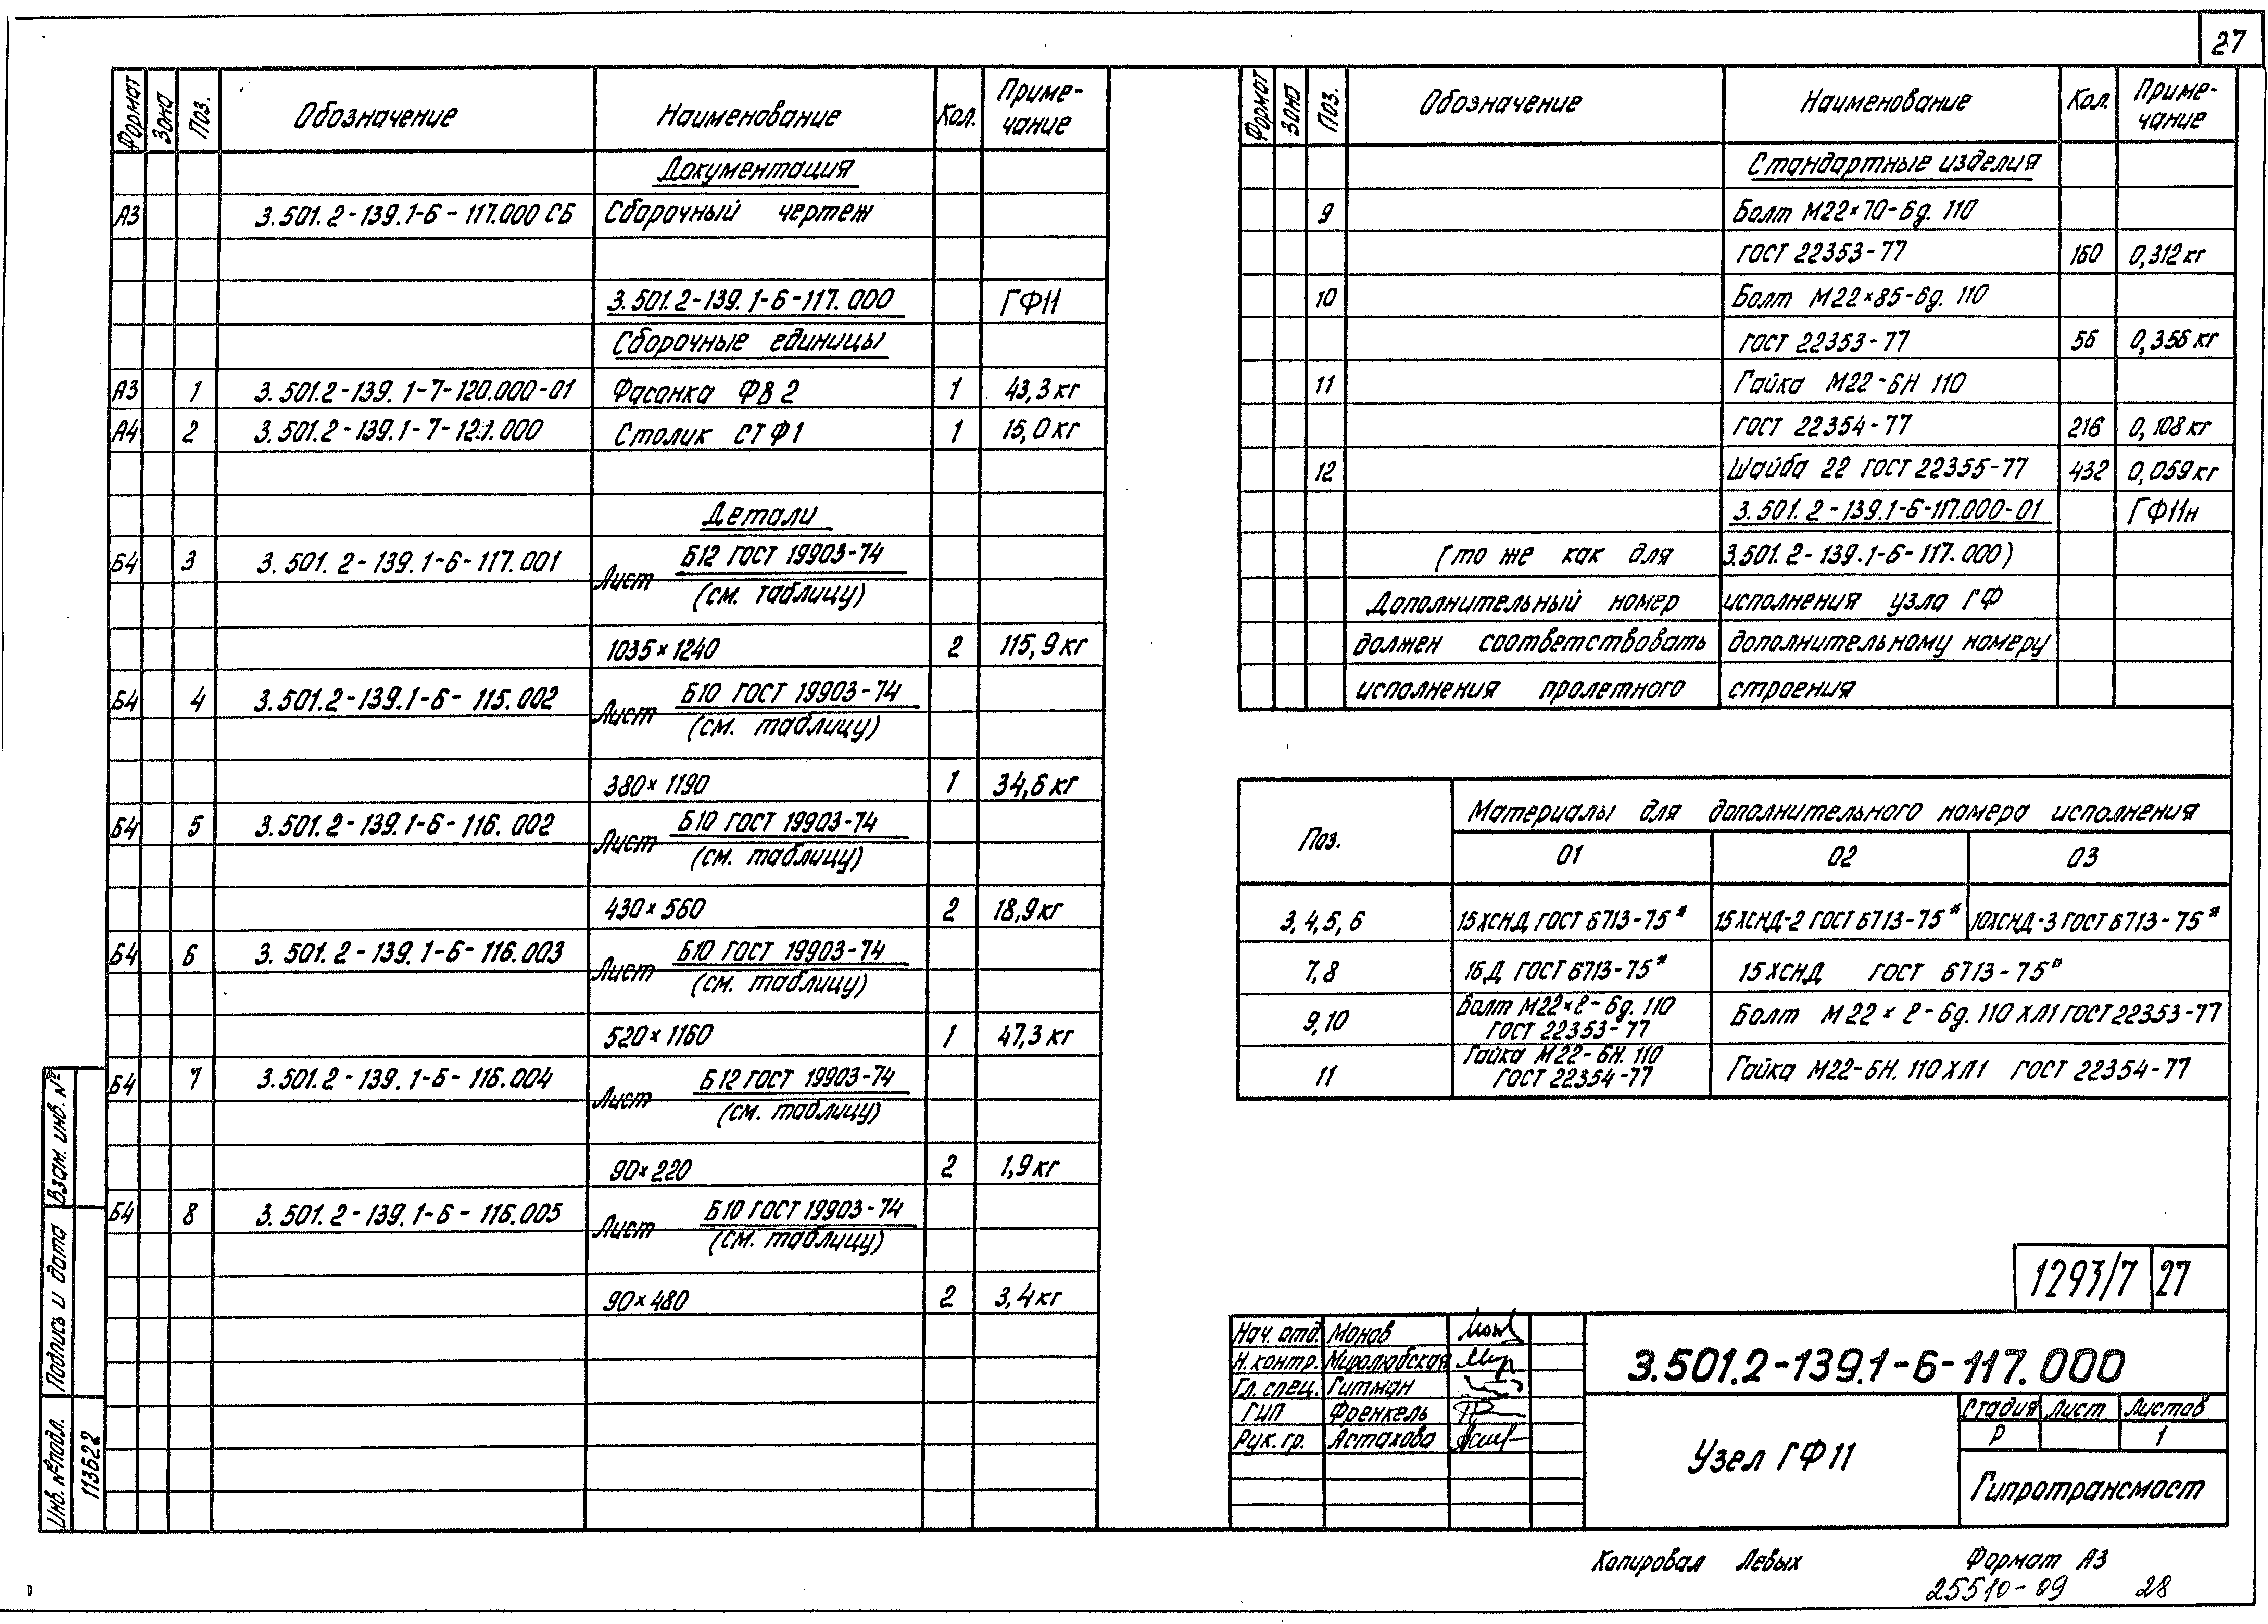 27
Формат Зона Поз. Обозначение Наименование Кол. Приме-чание
Документация
А3 3.501.2-139.1-6-117.000 СБ Сборочный чертеж
3.501.2-139.1-6-117.000 ГФ11
Сборочные единицы
А3 1 3.501.2-139.1-7-120.000-01 Фасонка ФВ2 1 43,3кг
А4 2 3.501.2-139.1-7-121.000 Столик СТФ1 1 15,0кг
Детали
Б4 3 3.501.2-139.1-6-117.001 Лист Б12 ГОСТ 19903-74
(см. таблицу)
1035×1240 2 115,9кг
Б4 4 3.501.2-139.1-6-115.002 Лист Б10 ГОСТ 19903-74
(см. таблицу)
380×1190 1 34,6кг
Б4 5 3.501.2-139.1-6-116.002 Лист Б10 ГОСТ 19903-74
(см. таблицу)
430×560 2 18,9кг
Б4 6 3.501.2-139.1-6-116.003 Лист Б10 ГОСТ 19903-74
(см. таблицу)
520×1160 1 47,3кг
Б4 7 3.501.2-139.1-6-116.004 Лист Б12 ГОСТ 19903-74
(см. таблицу)
90×220 2 1,9кг
Б4 8 3.501.2-139.1-6-116.005 Лист Б10 ГОСТ 19903-74
(см. таблицу)
90×480 2 3,4кг
Взам. инв. №
Подпись и дата
Инв. № подл.
113622
Формат Зона Поз. Обозначение Наименование Кол. Приме-чание
Стандартные изделия
9 Болт М22×70-6g.110
ГОСТ 22353-77 160 0,312кг
10 Болт М22×85-6g.110
ГОСТ 22353-77 56 0,356кг
11 Гайка М22-6Н 110
ГОСТ 22354-77 216 0,108кг
12 Шайба 22 ГОСТ 22355-77 432 0,059кг
3.501.2-139.1-6-117.000-01 ГФ11н
(то же как для 3.501.2-139.1-6-117.000)
Дополнительный номер исполнения узла ГФ
должен соответствовать дополнительному номеру
исполнения пролетного строения
Поз. Материалы для дополнительного номера исполнения
01 02 03
3,4,5,6 15ХСНД ГОСТ 6713-75* 15ХСНД-2 ГОСТ 6713-75* 10ХСНД-3 ГОСТ 6713-75*
7,8 16Д ГОСТ 6713-75* 15ХСНД ГОСТ 6713-75*
9,10 Болт М22×ℓ-6g.110
ГОСТ 22353-77 Болт М22×ℓ-6g.110 ХЛ1 ГОСТ 22353-77
11 Гайка М22-6Н.110
ГОСТ 22354-77 Гайка М22-6Н.110ХЛ1 ГОСТ 22354-77
1293/7 27
Нач. отд. Монов
Н.контр. Миролюбская
Гл. спец. Гитман
ГИП Френкель
Рук. гр. Астахова
3.501.2-139.1-6-117.000
Узел ГФ11
Стадия Лист Листов
Р 1
Гипротрансмост
Копировал Левых Формат А3
25510-09 28